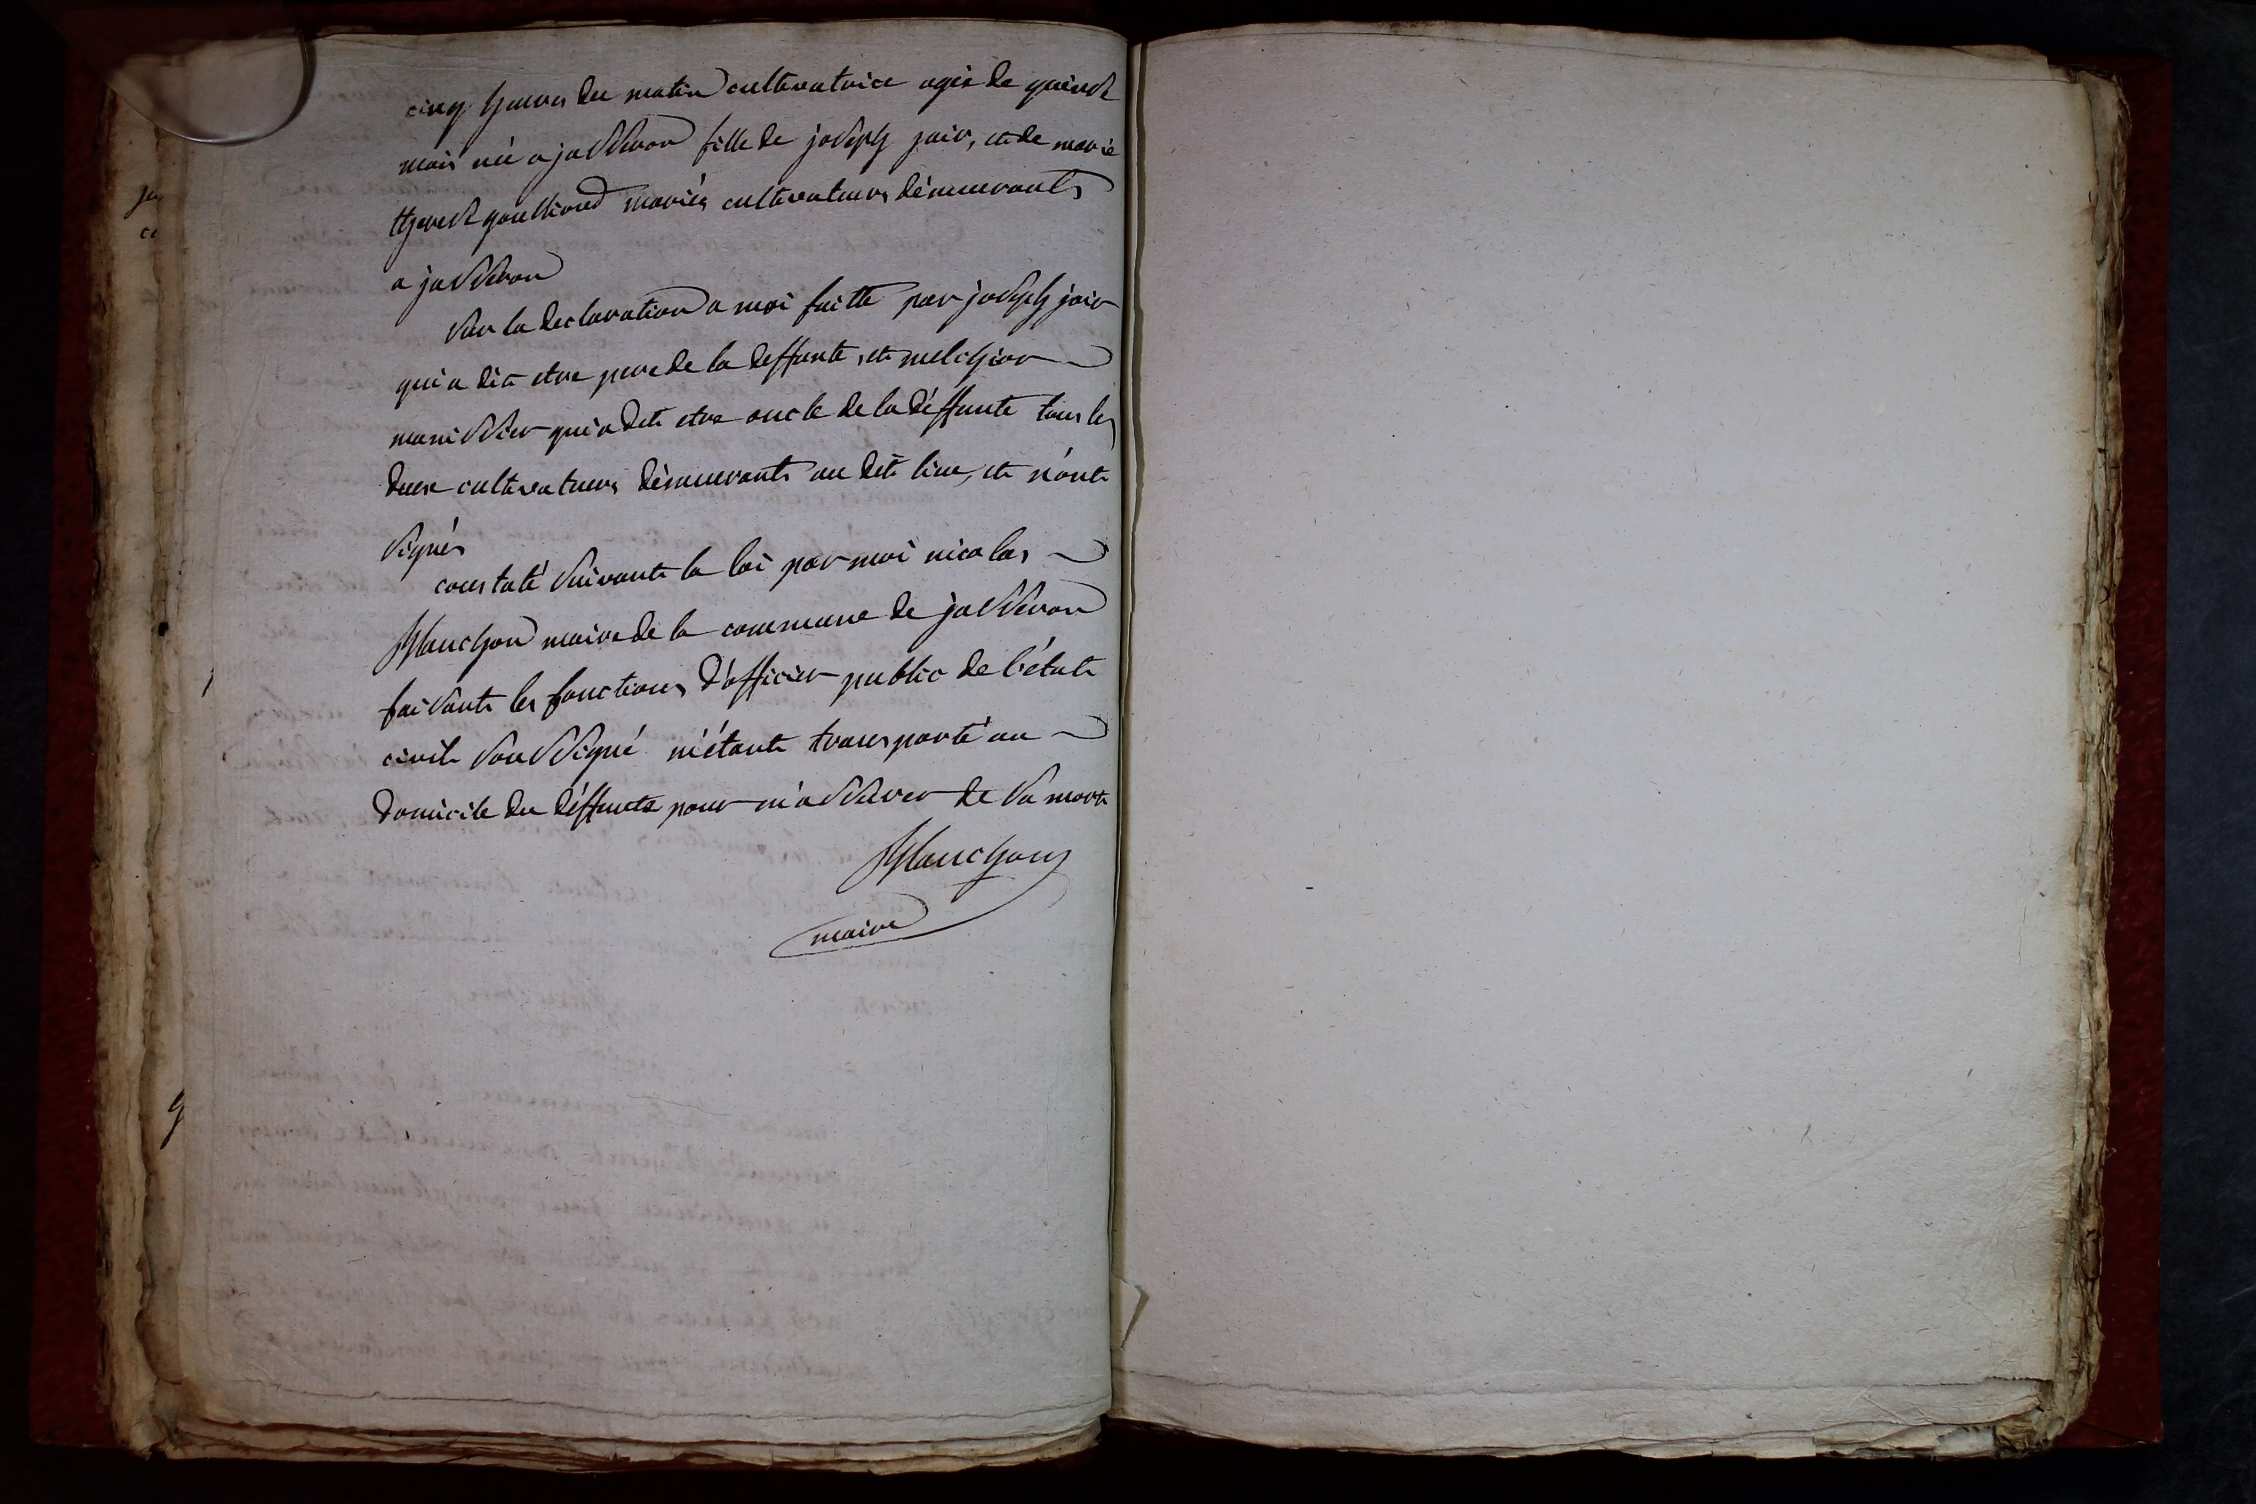 cinq heures du matin cultivatrice agée de quinse
mois née a jasseron fille de joseph jair, et de marie
therese goussiond mariés cultivateurs démeurants
a jasseron
Sur la declaration a moi faitte par joseph jair
qui a dit etre pere de la deffunte, et melchior
manissier qui a dit etre oncle de la déffunte tous les
deux cultivateurs démeurants au dit lieu, et n'ont
signés
constaté suivant la loi par moi nicolas
Planchon maire de la commune de jasseron
faisant les fonctions d'officier public de l'état
civil soussigné m'étant transporté au
domicile du déffunte pour m'assurer de sa mort
Planchon
maire